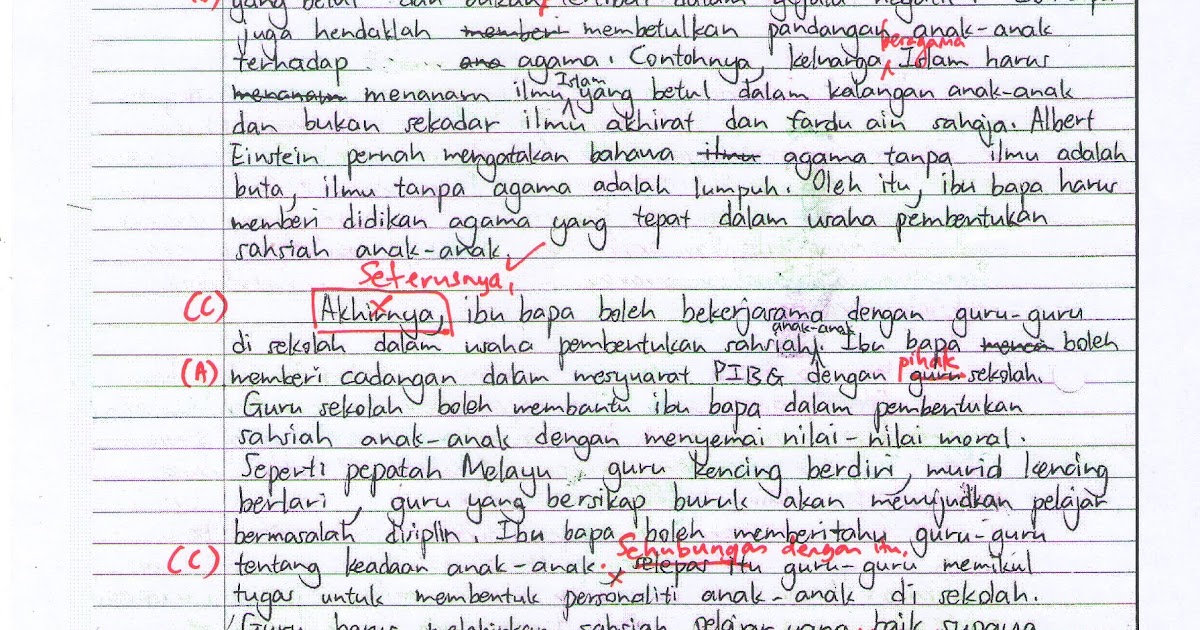 juga hendaklah memberi membetulkan pandangan anak-anak
beragama
terhadap ana agama. Contohnya, keluarga Islam harus
Islam
menanam menanam ilmu yang betul dalam kalangan anak-anak
dan bukan sekadar ilmu akhirat dan fardu ain sahaja. Albert
Einstein pernah mengatakan bahawa ilmu agama tanpa ilmu adalah
buta, ilmu tanpa agama adalah lumpuh. Oleh itu, ibu bapa harus
memberi didikan agama yang tepat dalam usaha pembentukan
sahsiah anak-anak.
Seterusnya,
(C) Akhirnya, ibu bapa boleh bekerjasama dengan guru-guru
anak-anak
di sekolah dalam usaha pembentukan sahsiah. Ibu bapa boleh
pihak
(A) memberi cadangan dalam mesyuarat PIBG dengan guru sekolah.
Guru sekolah boleh membantu ibu bapa dalam pembentukan
sahsiah anak-anak dengan menyemai nilai-nilai moral.
Seperti pepatah Melayu, guru kencing berdiri, murid kencing
berlari, guru yang bersikap buruk akan mewujudkan pelajar
bermasalah disiplin. Ibu bapa boleh memberitahu guru-guru
Sehubungan dengan itu,
(C) tentang keadaan anak-anak. selepas itu guru-guru memikul
tugas untuk membentuk personaliti anak-anak di sekolah.
Guru harus melahirkan sahsiah pelajar yang baik supaya